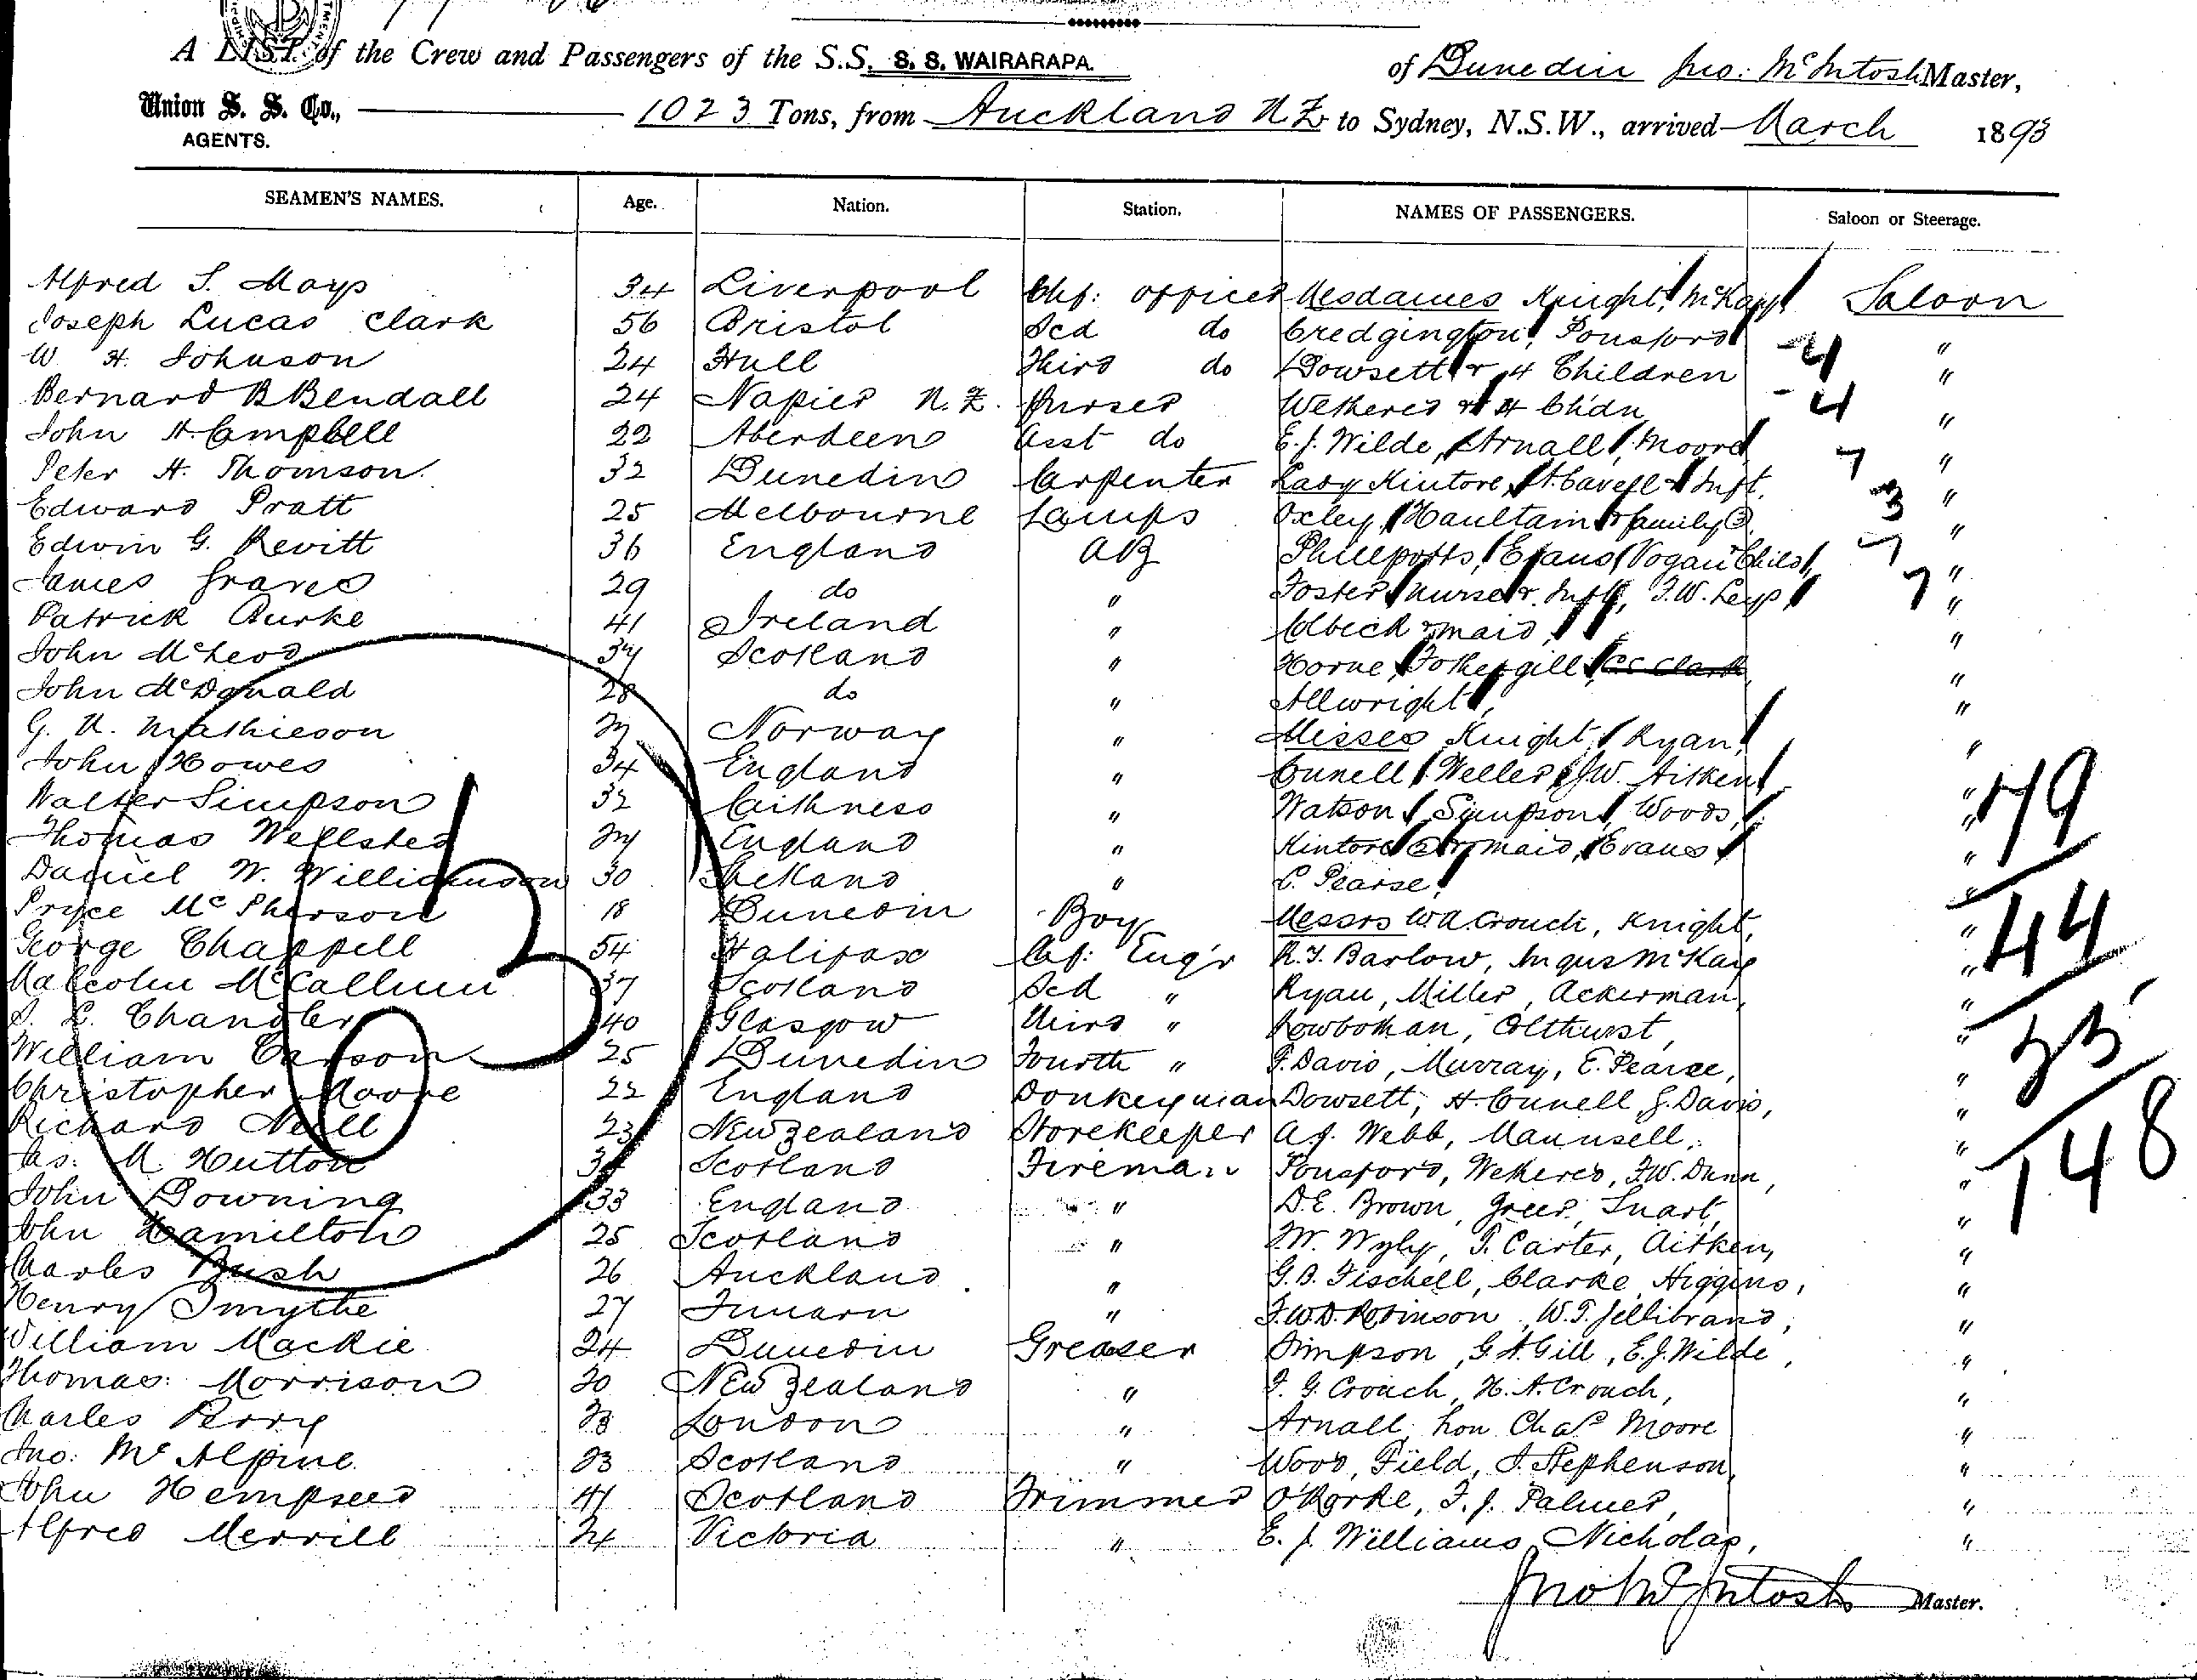 A LIST of the Crew and Passengers of the S.S. S. S. WAIRARAPA. of Dunedin Jno: McIntosh Master,
Union S. S. Co., AGENTS. 1023 Tons, from Auckland N Z to Sydney, N.S.W., arrived March 1893
SEAMEN'S NAMES. Age. Nation. Station. NAMES OF PASSENGERS. Saloon or Steerage.
Alfred S. Mays 34 Liverpool Chf: officer Mesdames Knight, McKay Saloon
Joseph Lucas Clark 56 Bristol Scd do Credgington, Ponsford "
W H. Johnson 24 Hull Third do Dowsett & 4 Children 4 "
Bernard B Bendall 24 Napier N.Z. Purser Wethered & 4 Chdn 4 "
John H. Campbell 22 Aberdeen Asst do E.J. Wilde, Arnall, Moore "
Peter H. Thomson 32 Dunedin Carpenter Lady Kintore, A. Cavell & Inft. 7 "
Edward Pratt 25 Melbourne Lamps Oxley, Haultain & family 3 3 "
Edwin G. Revitt 36 England AB Phillpotts, Evans, Vogan & Child, 7 "
James Graves 29 do " Foster, nurse & Inft, T.W. Leys, 7 "
Patrick Burke 41 Ireland " Colbeck & maid, "
John McLeod 34 Scotland " Horne, Fothergill, CC Clark "
John McDonald 28 do " Allwright, "
G. N. Mathieson Norway " Misses Knight, Ryan, "
John Howes 34 England " Cunell, Weller, J.W. Aitken, "
Walter Simpson 32 Caithness " Watson, Simpson, Woods, " 49
Thomas Wellsted England " Kintore 2 & maid, Evans "
Daniel W. Williamson 30 Shetland " C. Pearse, "
Pryce McPherson 18 Dunedin Boy Messrs W.A. Crouch, Knight, " 44
George Chappell 54 Halifax Chf: Eng'r R.T. Barlow, Angus McKay "
Malcolm McCallum 37 Scotland Scd " Ryan, Miller, Ackerman, "
L. Chandler 40 Glasgow Third " Rowbotham, Colthurst, " 55
William Carson 25 Dunedin Fourth " F. Davis, Murray, E. Pearse, "
Christopher Moore 22 England Donkeyman Dowsett, H. Cunell, G. Davis, " 148
Richard Neill 23 New Zealand Storekeeper A.J. Webb, Maunsell, "
Jas. M Hutton Scotland Fireman Ponsford, Wethered, F.W. Dunn, "
John Downing 33 England " D.E. Brown, Greer, Snart, "
John Hamilton 25 Scotland " J.W. Wyly, T. Carter, Aitken, "
Charles Bush 26 Auckland " G.B. Fischell, Clarke, Higgins, "
Henry Smythe 27 " F.W.D. Robinson, W.T. Jellibrand, "
William Mackie 24 Dunedin Greaser Simpson, G.A. Gill, E.J. Wilde, "
Thomas Morrison 20 New Zealand " F. G. Crouch, H. A. Crouch, "
Charles Perry London " Arnall, Hon Chas Moore "
Jno: McAlpine 23 Scotland " Wood, Field, J. Stephenson, "
John Hempseed 41 Scotland Trimmer O'Rorke, F. J. Palmer, "
Alfred Merrill 24 Victoria " E. J. Williams, Nicholas, "
Jno McIntosh Master.